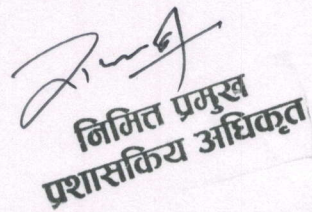 निमित्त प्रमुख
प्रशासकिय अधिकृत